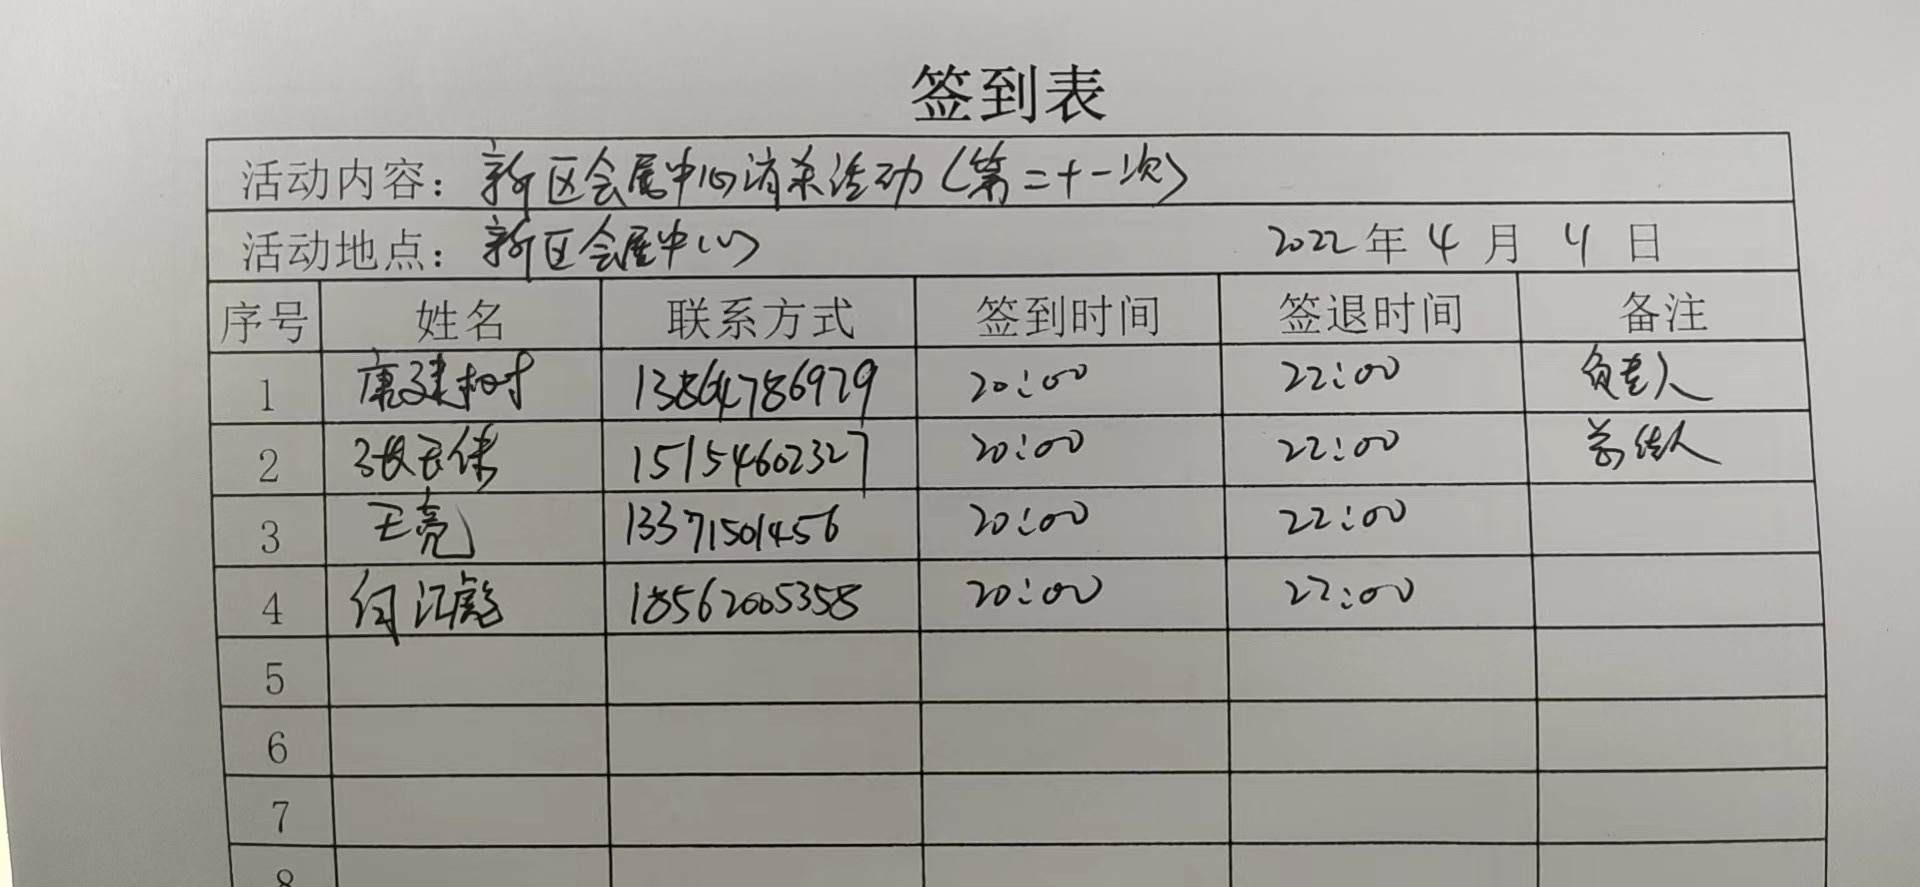 签到表
活动内容：新区会展中心消杀活动（第二十一次）
活动地点：新区会展中心 2022年4月4日
序号 姓名 联系方式 签到时间 签退时间 备注
1 唐建树 13864786929 20:00 22:00 负责人
2 张玉保 15154602327 20:00 22:00
3 王亮 13371501456 20:00 22:00
4 何江彪 18562005358 20:00 22:00
5
6
7
8